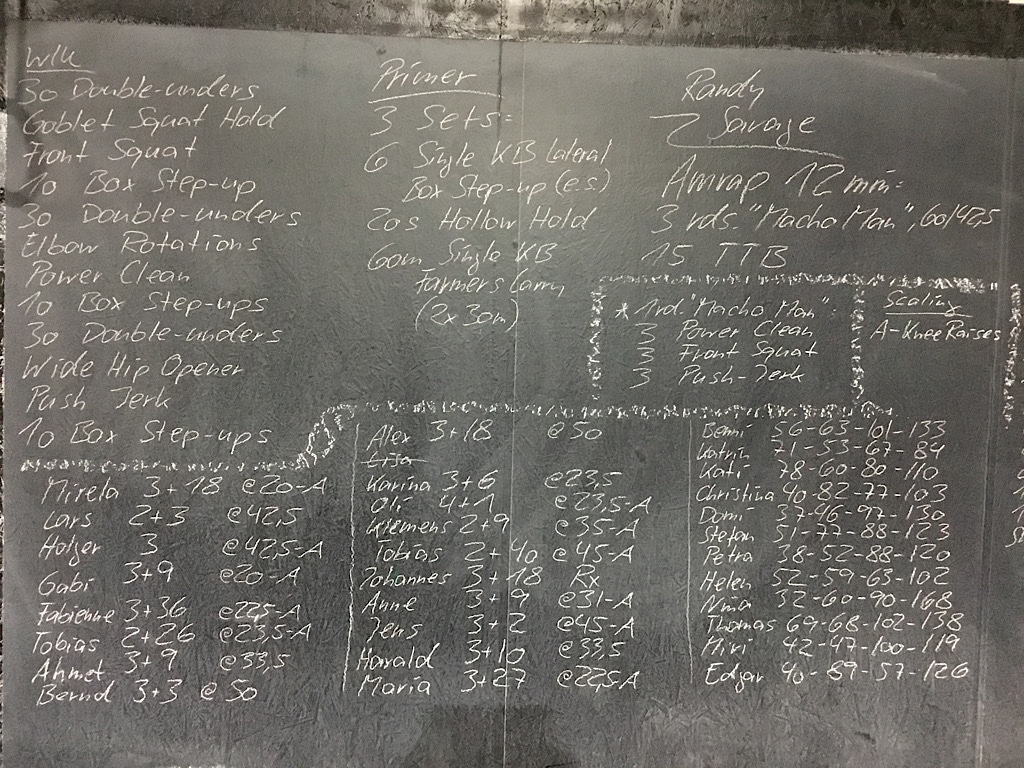 WU
30 Double-unders
Goblet Squat Hold
Front Squat
10 Box Step-up
30 Double-unders
Elbow Rotations
Power Clean
10 Box Step-ups
30 Double-unders
Wide Hip Opener
Push Jerk
10 Box Step-ups
Primer
3 Sets:
6 Single KB Lateral
Box Step-up (e.s)
20s Hollow Hold
60m Single KB
Farmers Carry
(2x 30m)
Randy
Savage
Amrap 12 min:
3 rds. "Macho Man", 60/42,5
15 TTB
* 1rd. "Macho Man":
3 Power Clean
3 Front Squat
3 Push-Jerk
Scaling
A-Knee Raises
Mirela 3+18 @20-A
Lars 2+3 @42,5
Holger 3 @42,5-A
Gabi 3+9 @20-A
Fabienne 3+36 @22,5-A
Tobias 2+26 @23,5-A
Ahmet 3+9 @33,5
Bernd 3+3 @50
Alex 3+18 @50
Lisa
Karina 3+6 @23,5
Oli 4+1 @23,5-A
Klemens 2+9 @35-A
Tobias 2+40 @45-A
Johannes 3+18 Rx
Anne 3+9 @31-A
Jens 3+2 @45-A
Harald 3+10 @33,5
Maria 3+27 @22,5-A
Benni 56-63-101-133
Katrin 71-53-67-84
Kati 78-60-80-110
Christina 40-82-77-103
Domi 37-46-97-130
Stefan 51-77-88-123
Petra 38-52-88-120
Helen 52-59-63-102
Nina 32-60-90-168
Thomas 69-68-102-138
Miri 42-47-100-119
Edgar 40-89-57-126